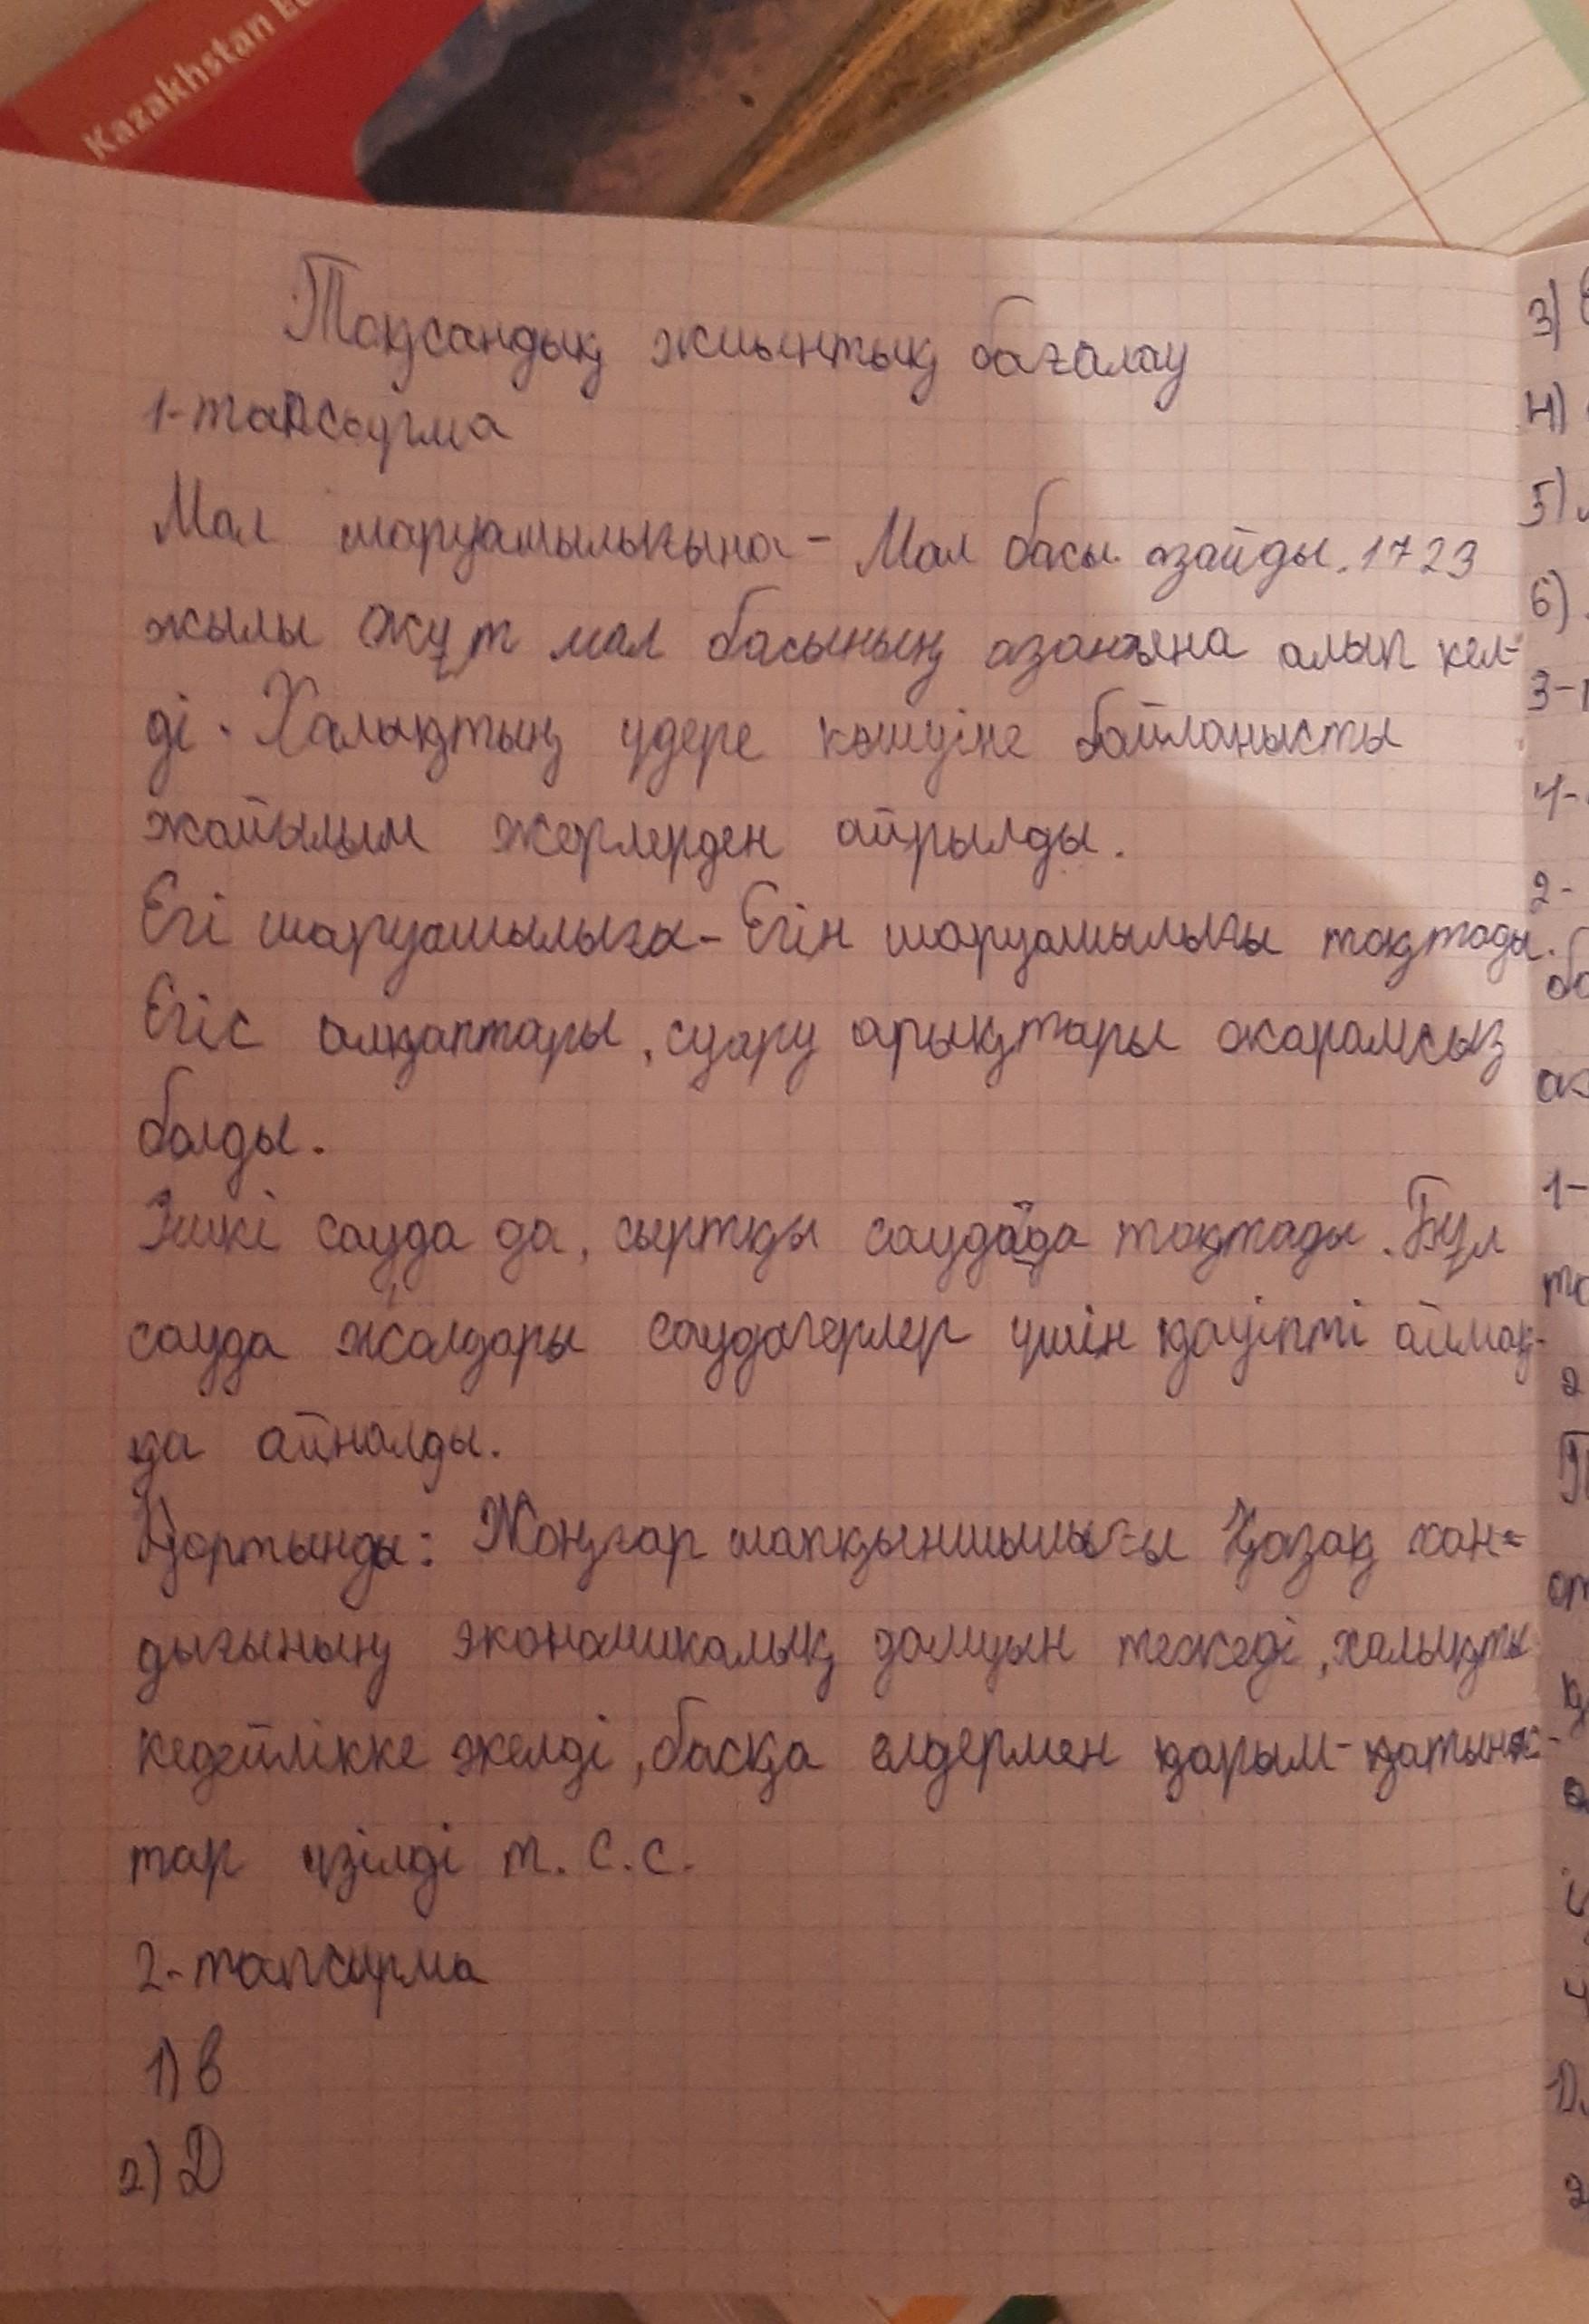 Kazakhstan
Тоқсандық жиынтық бағалау
1-тапсырма
Мал шаруашылығына - Мал басы азайды. 1723
жылы жұт мал басының азаюына алып кел-
ді. Халықтың үдере көшуіне байланысты
жайылым жерлерден айрылды.
Егі шаруашылыға - Егін шаруашылығы тоқтады.
Егіс алқаптары, суару арықтары жарамсыз
болды.
Ішкі сауда да, сыртқы саудада тоқтады. Бұл
сауда жолдары саудагерлер үшін қауіпті аймақ-
қа айналды.
Қортынды: Жоңғар шапқыншылығы Қазақ хан=
дығының экономикалық дамуын тежеді, халықты
кедейлікке әкелді, басқа елдермен қарым-қатынас-
тар үзілді т. с. с.
2-тапсырма
1) в
2) D
3)
4)
5)
6)
3-
4-
2-
1-
2